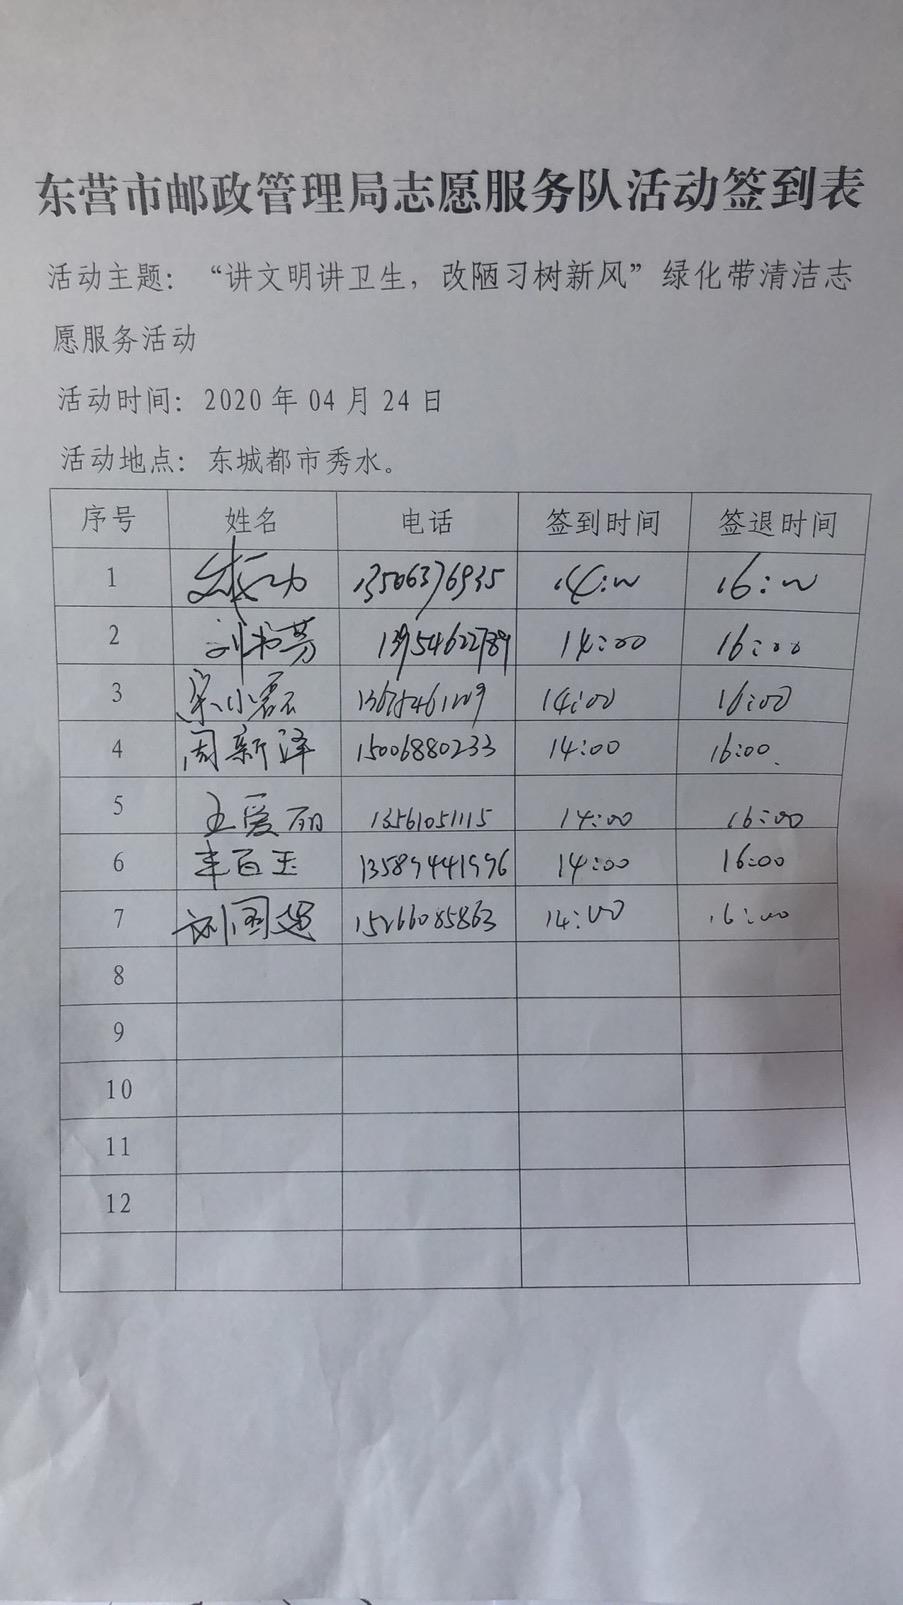 东营市邮政管理局志愿服务队活动签到表
活动主题：“讲文明讲卫生，改陋习树新风”绿化带清洁志
愿服务活动
活动时间：2020年04月24日
活动地点：东城都市秀水。
序号 姓名 电话 签到时间 签退时间
1 13506376935 14:00 16:00
2 刘书芳 13954622789 14:00 16:00
3 宋小磊 14:00 16:00
4 周新泽 15006880233 14:00 16:00.
5 王爱丽 13561051115 14:00 16:00
6 丰百玉 13589441996 14:00 16:00
7 刘国超 15266085863 14:00 16:00
8
9
10
11
12